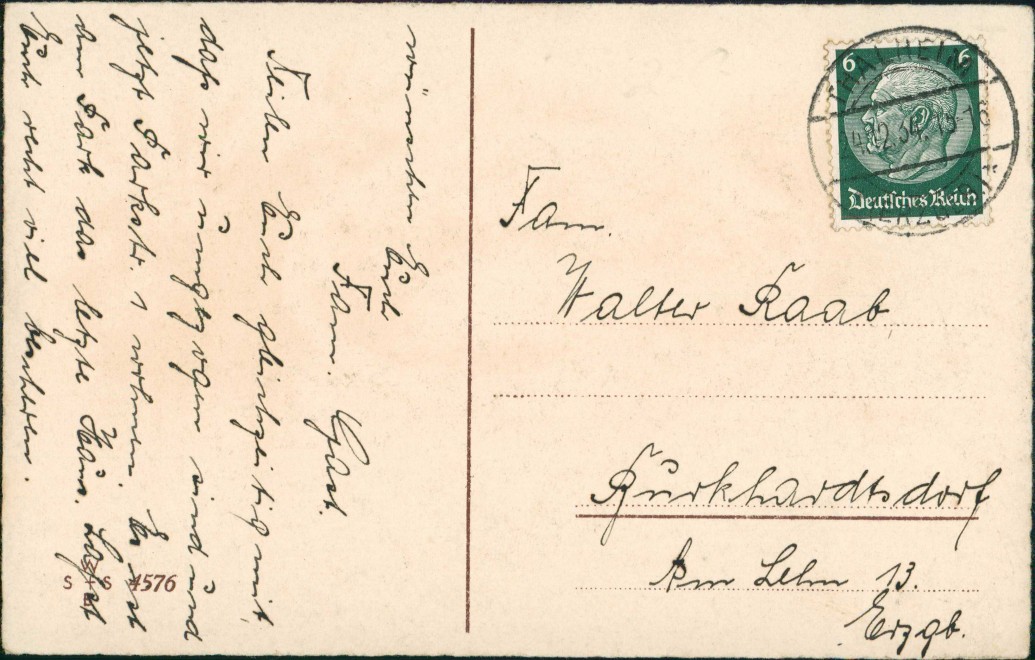 wünschen Euch
Fam. Gast.
Teilen Euch gleichzeitig mit,
daß wir umgezogen sind und
jetzt Parkstr. 1 wohnen. Es ist
am Park das letzte Haus. Laßt
Euch recht viel bescheren.
S S 4576
Fam.
Walter Raab
Burkhardtsdorf
Am Lehn 13.
Erzgb.
6 6
Deutsches Reich
THALHEIM
12.34. 18
ERZGEB